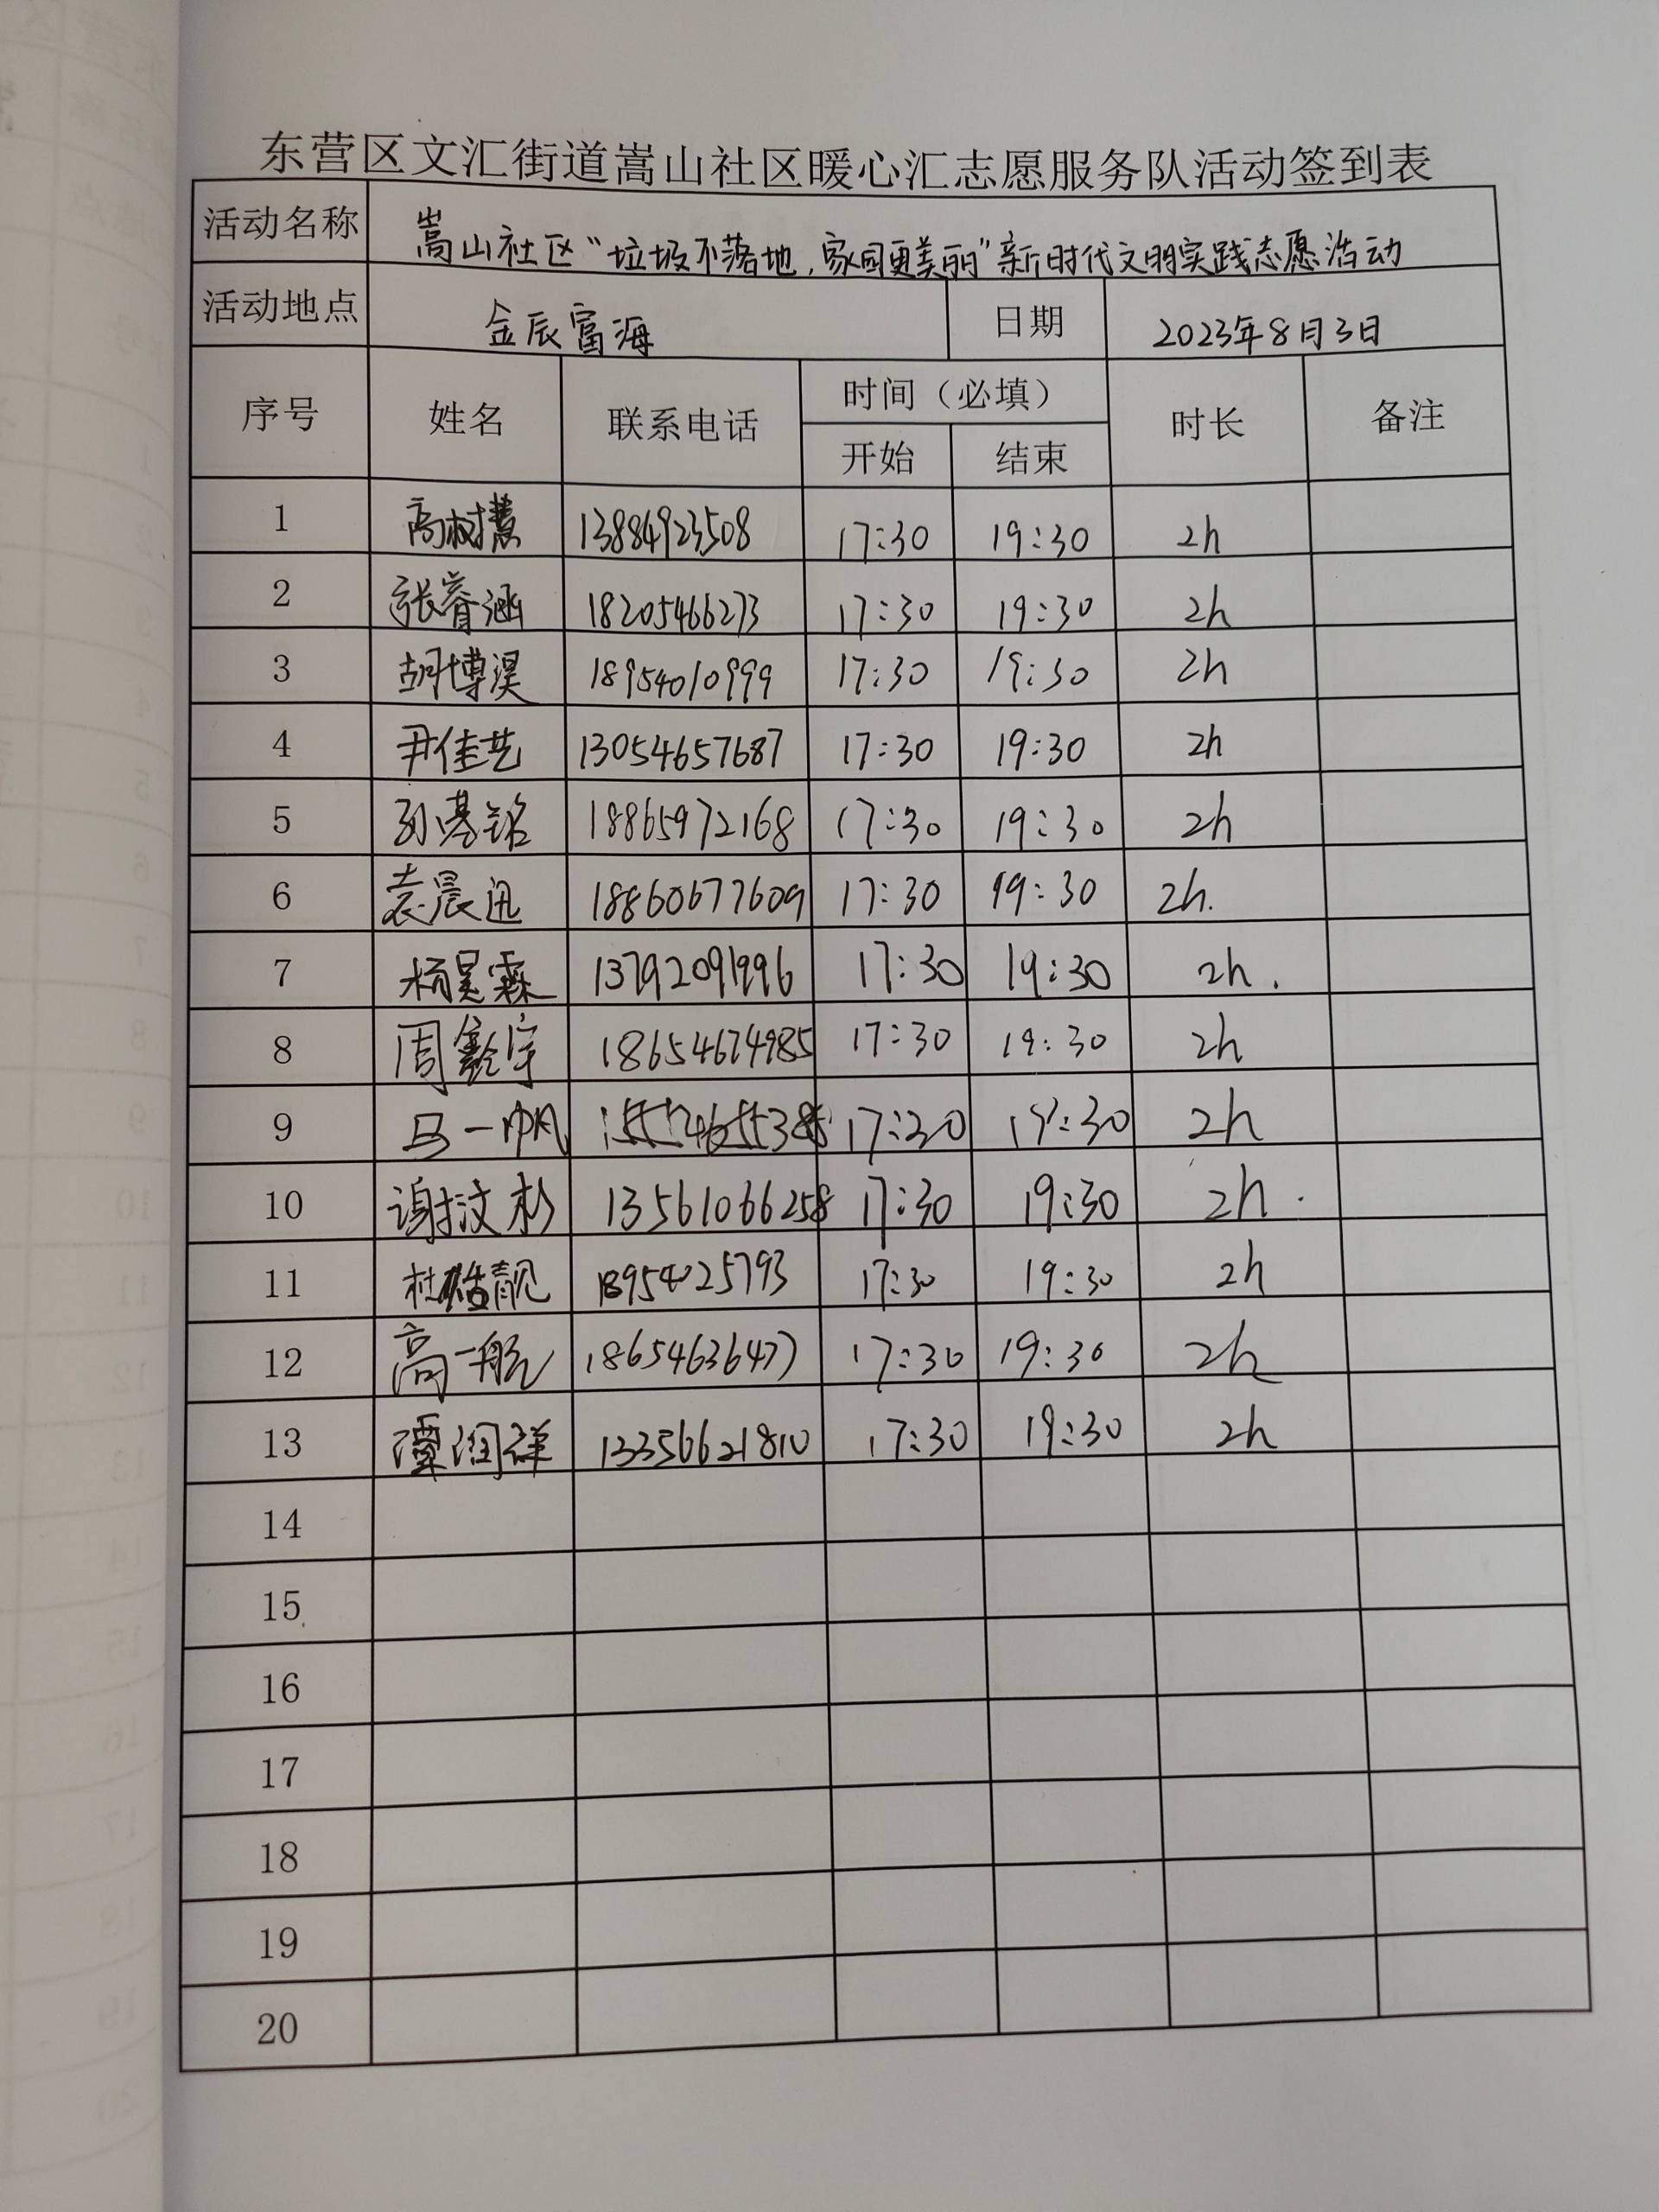 东营区文汇街道嵩山社区暖心汇志愿服务队活动签到表
活动名称 嵩山社区“垃圾不落地，家园更美丽”新时代文明实践志愿活动
活动地点 金辰富海 日期 2023年8月3日
序号 姓名 联系电话 时间（必填） 时长 备注
开始 结束
1 高树慧 13884923508 17:30 19:30 2h
2 张睿涵 18205466273 17:30 19:30 2h
3 胡博淏 18954010999 17:30 19:30 2h
4 尹佳艺 13054657687 17:30 19:30 2h
5 孙铭 18865972168 17:30 19:30 2h
6 袁晨迅 18860677609 17:30 19:30 2h.
7 杨昊霖 13792091996 17:30 19:30 2h.
8 周宇 18654674985 17:30 19:30 2h
9 马一帆 17:30 19:30 2h
10 谢汶杉 13561066258 17:30 19:30 2h.
11 杜靓 18954025793 17:30 19:30 2h
12 高一航 18654636477 17:30 19:30 2h
13 谭润祥 13356621810 17:30 19:30 2h
14
15
16
17
18
19
20